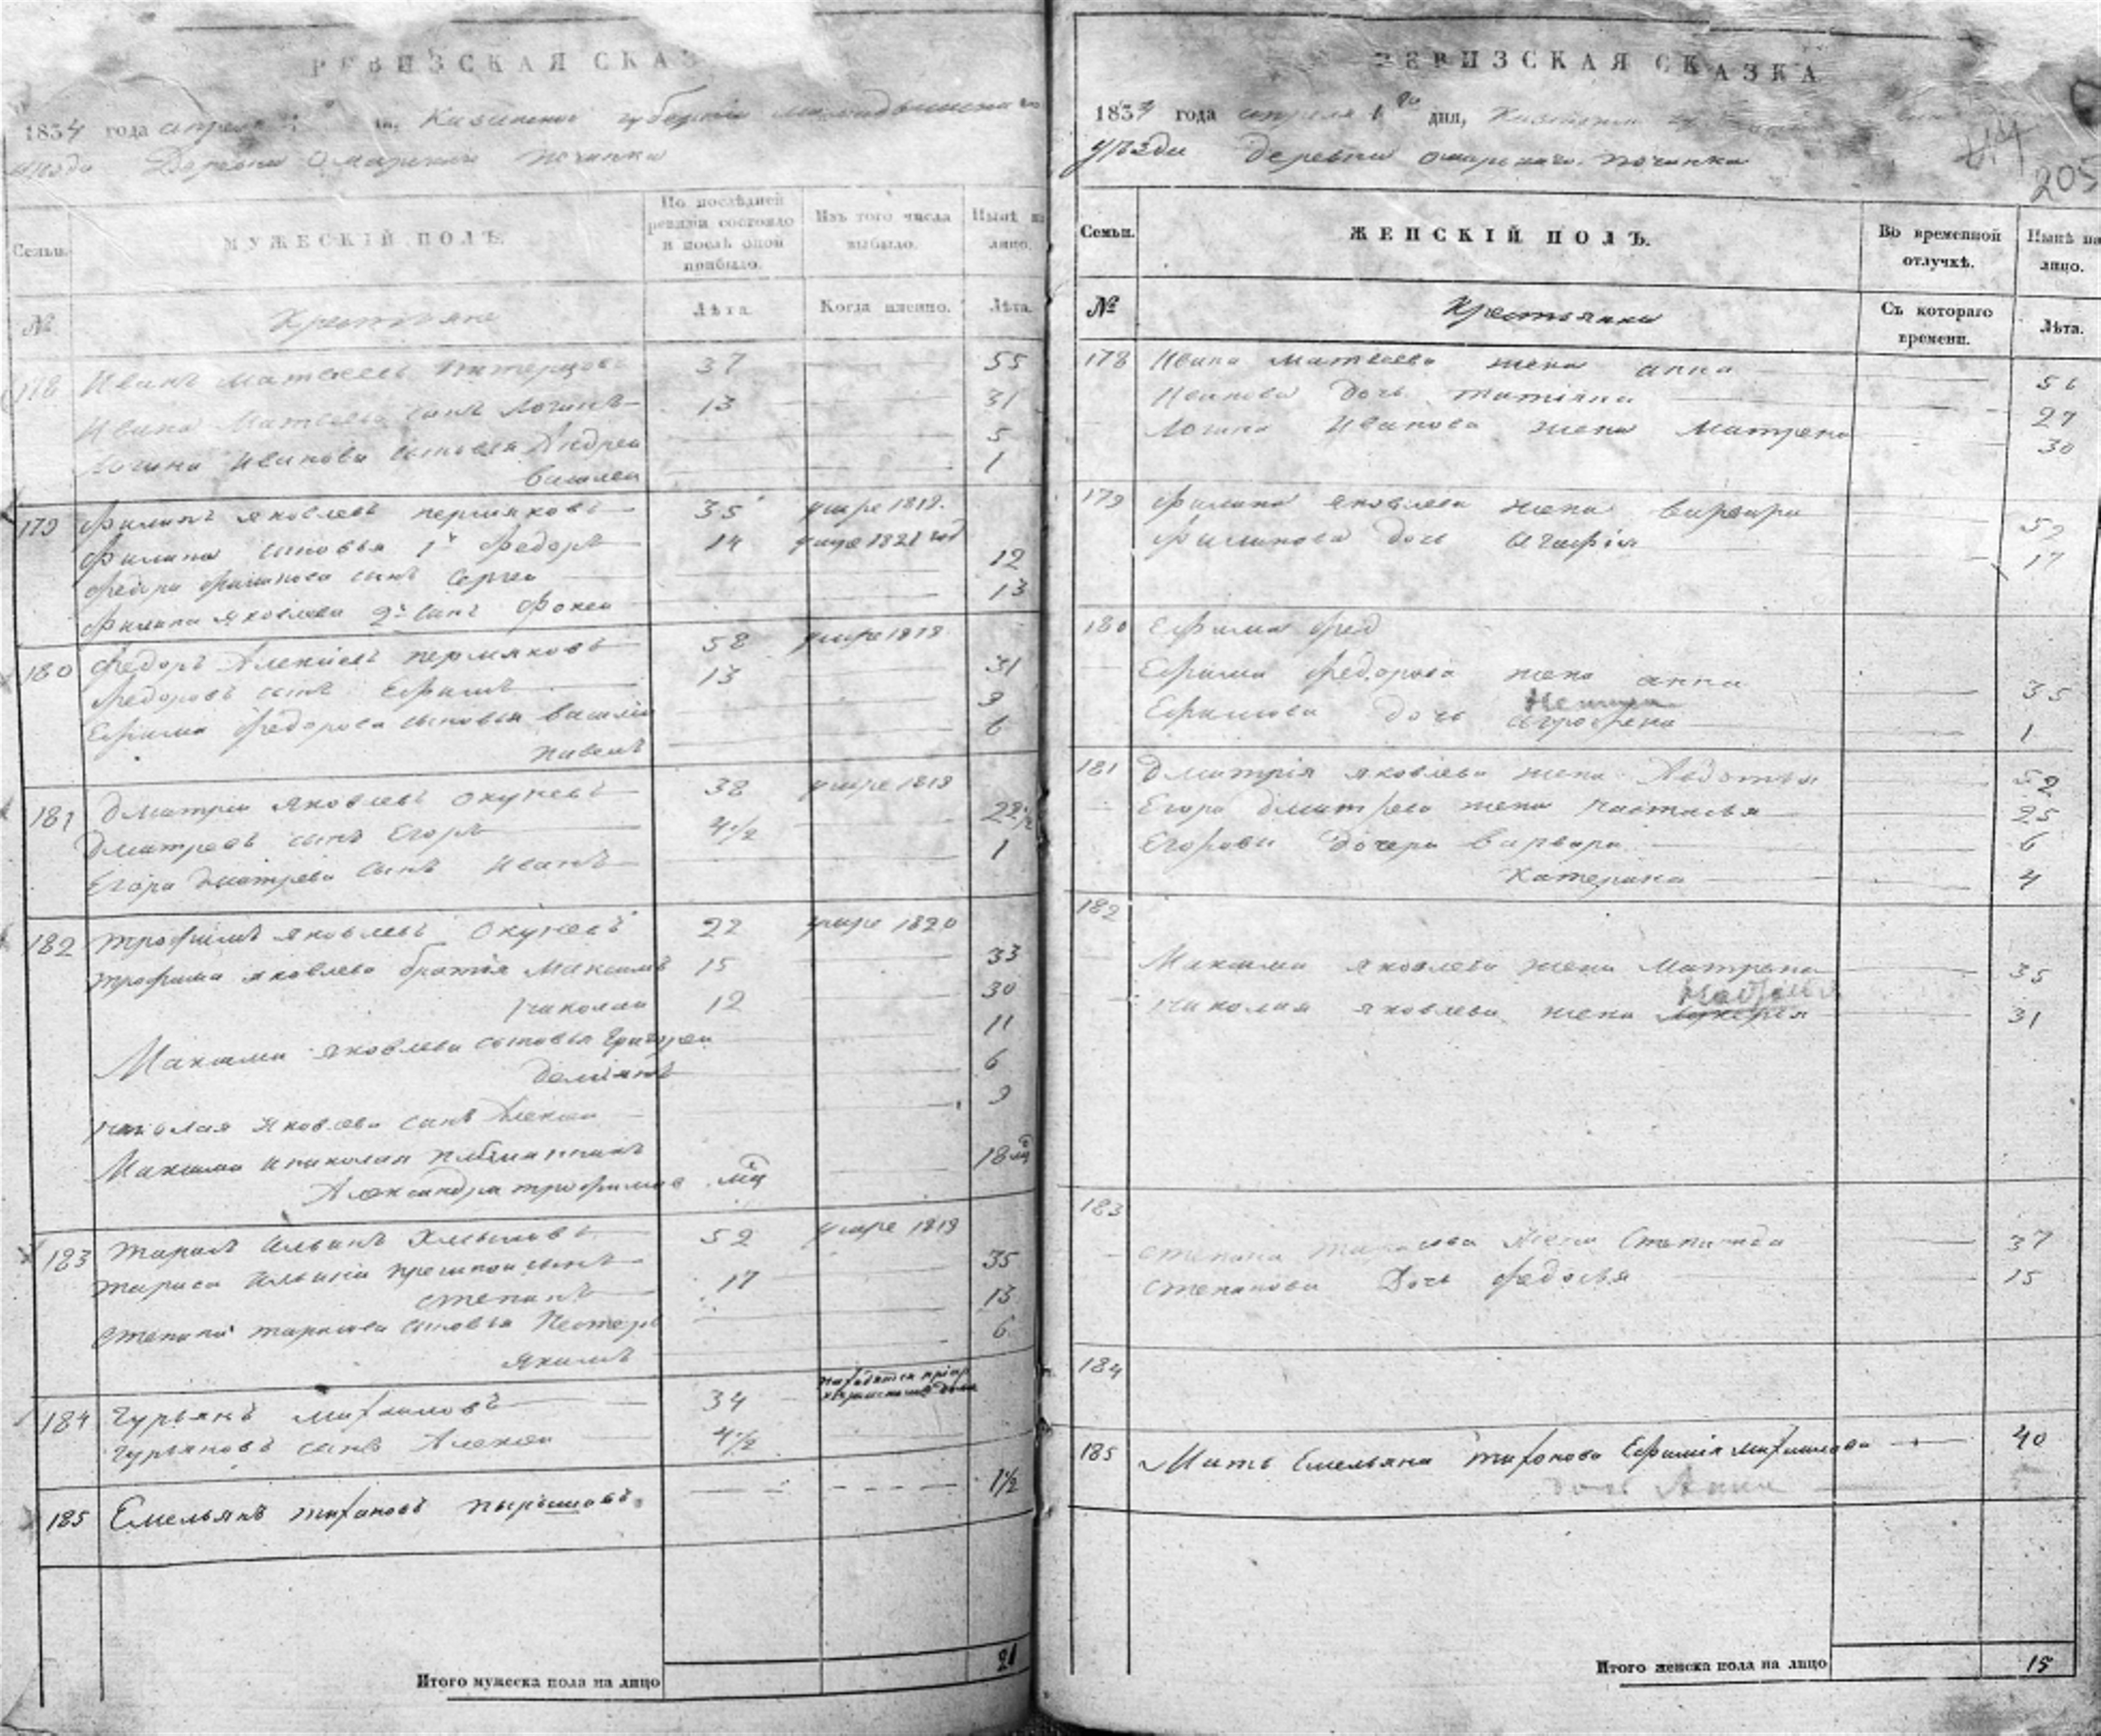 РЕВИЗСКАЯ СКАЗ
1834 года апреля Казанской губернии
уезда Деревни Омарскаго починка
Семьи.
МУЖЕСКІЙ ПОЛЪ.
По послѣдней ревизіи состояло и послѣ оной прибыло.
Изъ того числа выбыло.
Нынѣ на лицо.
№
Крестьяне
Лѣта.
Когда именно.
Лѣта.
178 Иванъ Матвеевъ 37 55
Ивана Матвеева сынъ Логинъ 13 31
Логина Иванова сыновья Андреи 5
Василеи 1
179 Филипъ Яковлевъ Пермяковъ 35 умре 1819.
Филипа сыновья 1й Федоръ 14 умре 1821 год
Федора Филипова сынъ Сергеи 12
Филипа Яковлева 2й сынъ Фокеи 13
180 Федоръ Алексеевъ Пермяковъ 58 умре 1819
Федоровъ сынъ Ефимъ 13 31
Ефима Федорова сыновья Василіи 9
Павелъ 6
181 Дмитреи Яковлевъ Окуневъ 38 умре 1819
Дмитреевъ сынъ Егоръ 4 1/2 22 1/2
Егора Дмитрева сынъ Иванъ 1
182 Трофимъ Яковлевъ Окуневъ 22 умре 1820
Трофима Яковлева братья Максимъ 15 33
Николаи 12 30
Максима Яковлева сыновья Григореи 11
Демьянъ 6
Николая Яковлева сынъ Алексеи 9
Максима и Николая племянникъ
Александра Трофимов мц 18 мц
183 Тарасъ Ильинъ 52 умре 1819
Тараса Ильина сынъ
Степанъ 17 35
Степана Тарасова сыновья Нестеръ 13
Якимъ 6
184 Гурьянъ Михаиловъ 34 находятся
Гурьяновъ сынъ Алексеи 4 1/2
185 Емельянъ Тихановъ 1 1/2
Итого мужеска пола на лицо 21
РЕВИЗСКАЯ СКАЗКА
1834 года апреля 1го дня,
уѣзда деревни Омарскаго починка
205
Семьи.
ЖЕНСКІЙ ПОЛЪ.
Во временной отлучкѣ.
Нынѣ на лицо.
№
Крестьянки
Съ котораго времени.
Лѣта.
178 Ивана Матвеева жена Анна 56
Иванова дочь Татіяна 27
Логина Иванова жена Матрена 30
179 Филипа Яковлева жена Варвара 52
Филипова дочь Агафія 17
180 Ефима Фед
Ефима Федорова жена Анна 35
Ефимова дочь Агрофена 1
181 Дмитрія Яковлева жена Авдотья 52
Егора Дмитрева жена Настасья 25
Егоровы дочери Варвара 6
Катерина 4
182
Максима Яковлева жена Матрена 35
Николая Яковлева жена 31
183
Степана Тарасова жена Степанида 37
Степанова дочь Федосья 15
184
185 Мать Емельяна Тихонова Ефимія Михаилова 40
дочь Анна
Итого женска пола на лицо 15